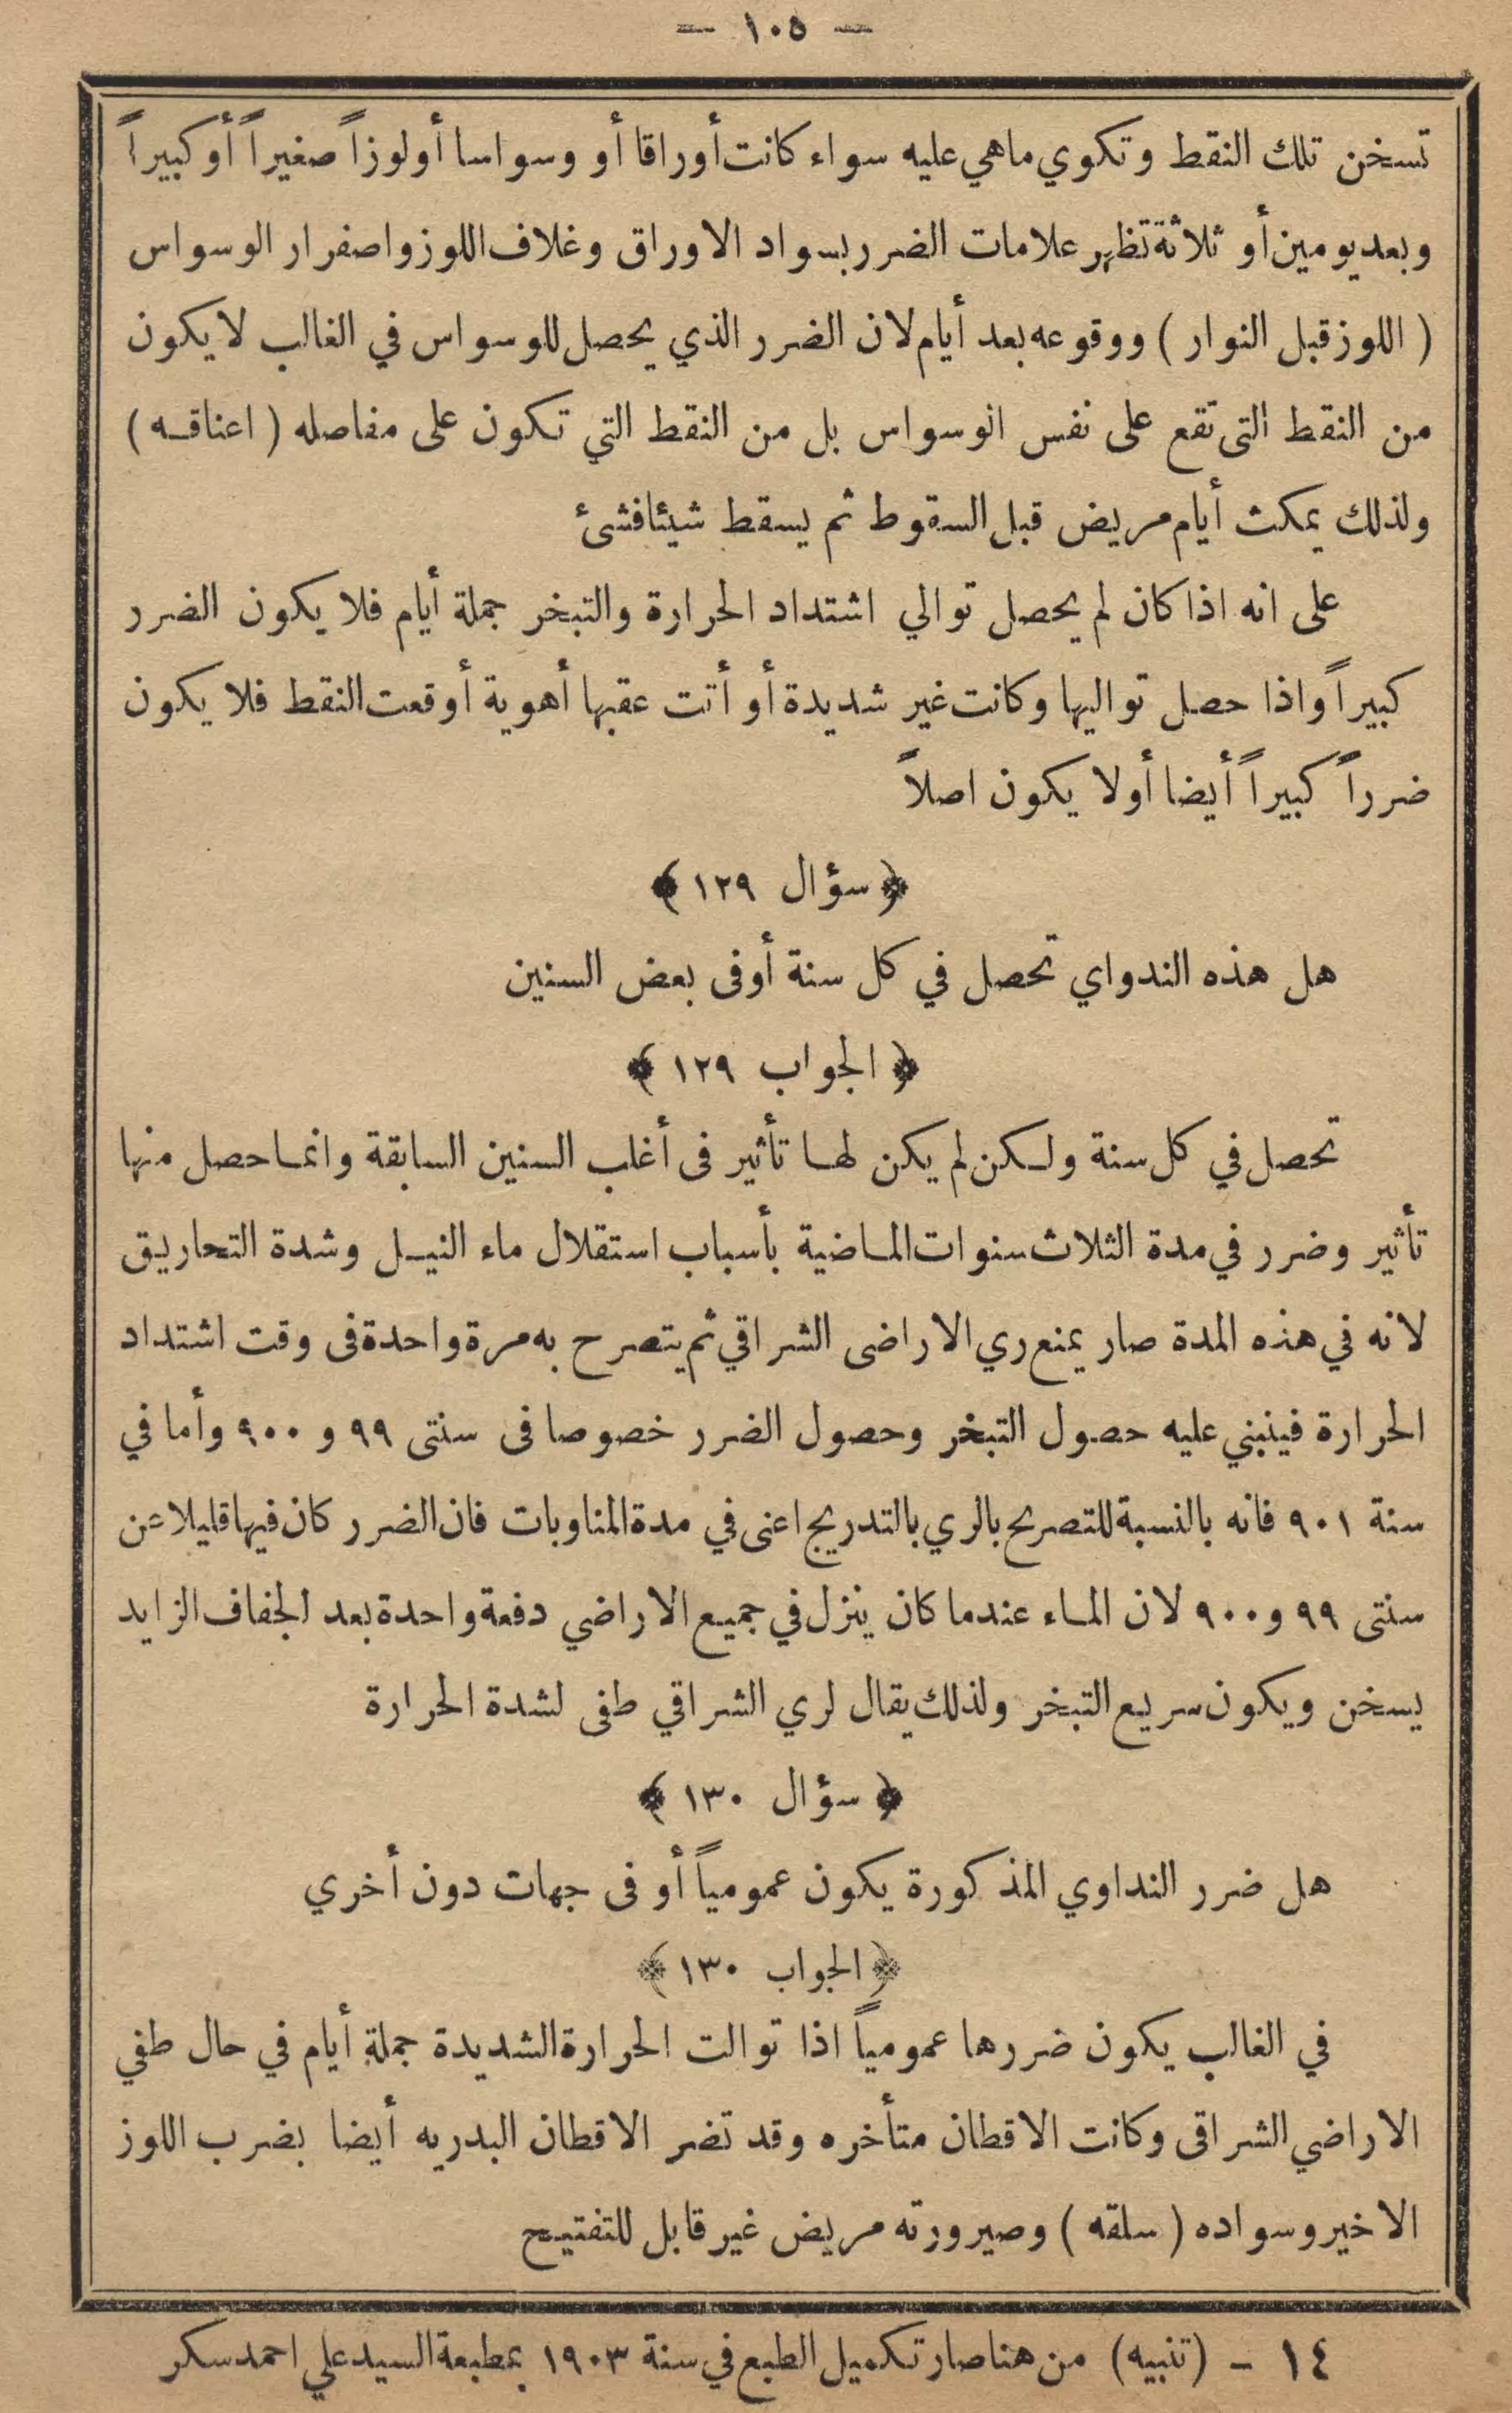 — ١٠٥ —
تسخن تلك النقط وتكوي ماهي عليه سواء كانت أوراقا أو وسواسا أو لوزاً صغيراً أو كبيراً
وبعد يومين أو ثلاثة تظهر علامات الضرر بسواد الاوراق وغلاف اللوز واصفرار الوسواس
( اللوز قبل النوار ) ووقوعه بعد أيام لان الضرر الذي يحصل للوسواس في الغالب لا يكون
من النقط التى تقع على نفس الوسواس بل من النقط التي تكون على مفاصله ( اعناقه )
ولذلك يمكث أيام مريض قبل السقوط ثم يسقط شيئا فشئ
على انه اذا كان لم يحصل توالي اشتداد الحرارة والتبخر جملة أيام فلا يكون الضرر
كبيراً واذا حصل تواليها وكانت غير شديدة أو أتت عقبها أهوية أوقعت النقط فلا يكون
ضرراً كبيراً أيضا أولا يكون اصلاً
﴿ سؤال ١٢٩ ﴾
هل هذه الندواي تحصل في كل سنة أو فى بعض السنين
﴿ الجواب ١٢٩ ﴾
تحصل في كل سنة ولكن لم يكن لها تأثير فى أغلب السنين السابقة وانما حصل منها
تأثير وضرر في مدة الثلاث سنوات الماضية بأسباب استقلال ماء النيل وشدة التحاريق
لانه في هذه المدة صار يمنع ري الاراضى الشراقي ثم يتصرح به مرة واحدة فى وقت اشتداد
الحرارة فينبني عليه حصول التبخر وحصول الضرر خصوصا فى سنتى ٩٩ و ٩٠٠ وأما في
سنة ٩٠١ فانه بالنسبة للتصريح بالري بالتدريج اعنى في مدة المناوبات فان الضرر كان فيها قليلا عن
سنتى ٩٩ و ٩٠٠ لان الماء عندما كان ينزل في جميع الاراضي دفعة واحدة بعد الجفاف الزايد
يسخن ويكون سريع التبخر ولذلك يقال لري الشراقي طفى لشدة الحرارة
﴿ سؤال ١٣٠ ﴾
هل ضرر النداوي المذكورة يكون عمومياً أو فى جهات دون أخري
﴿ الجواب ١٣٠ ﴾
في الغالب يكون ضررها عمومياً اذا توالت الحرارة الشديدة جملة أيام في حال طفي
الاراضي الشراقى وكانت الاقطان متأخره وقد تضر الاقطان البدريه أيضا بضرب اللوز
الاخير وسواده ( سلقه ) وصيرورته مريض غير قابل للتفتيح
١٤ - (تنبيه) من هنا صار تكميل الطبع في سنة ١٩٠٣ بمطبعة السيد علي احمد سكر